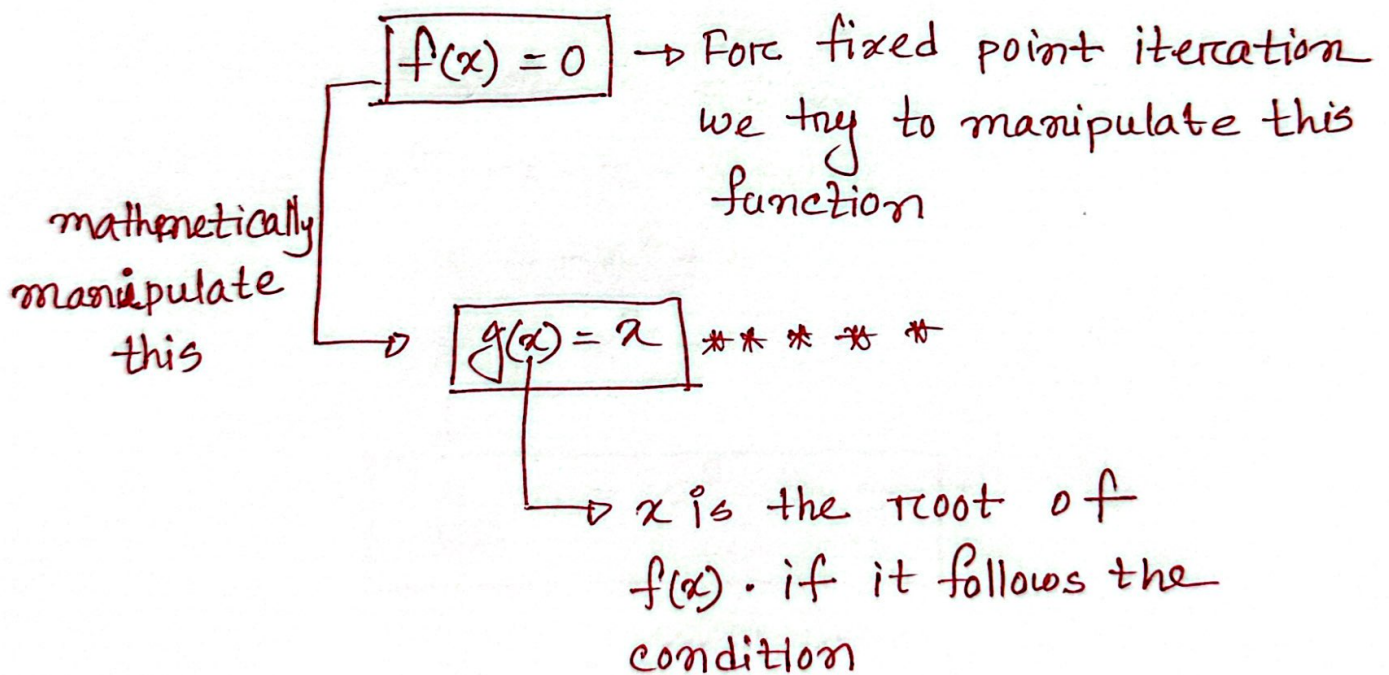 f(x) = 0 → For fixed point iteration
we try to manipulate this
function
mathemetically
manipulate
this
g(x) = x * * * * *
x is the root of
f(x). if it follows the
condition